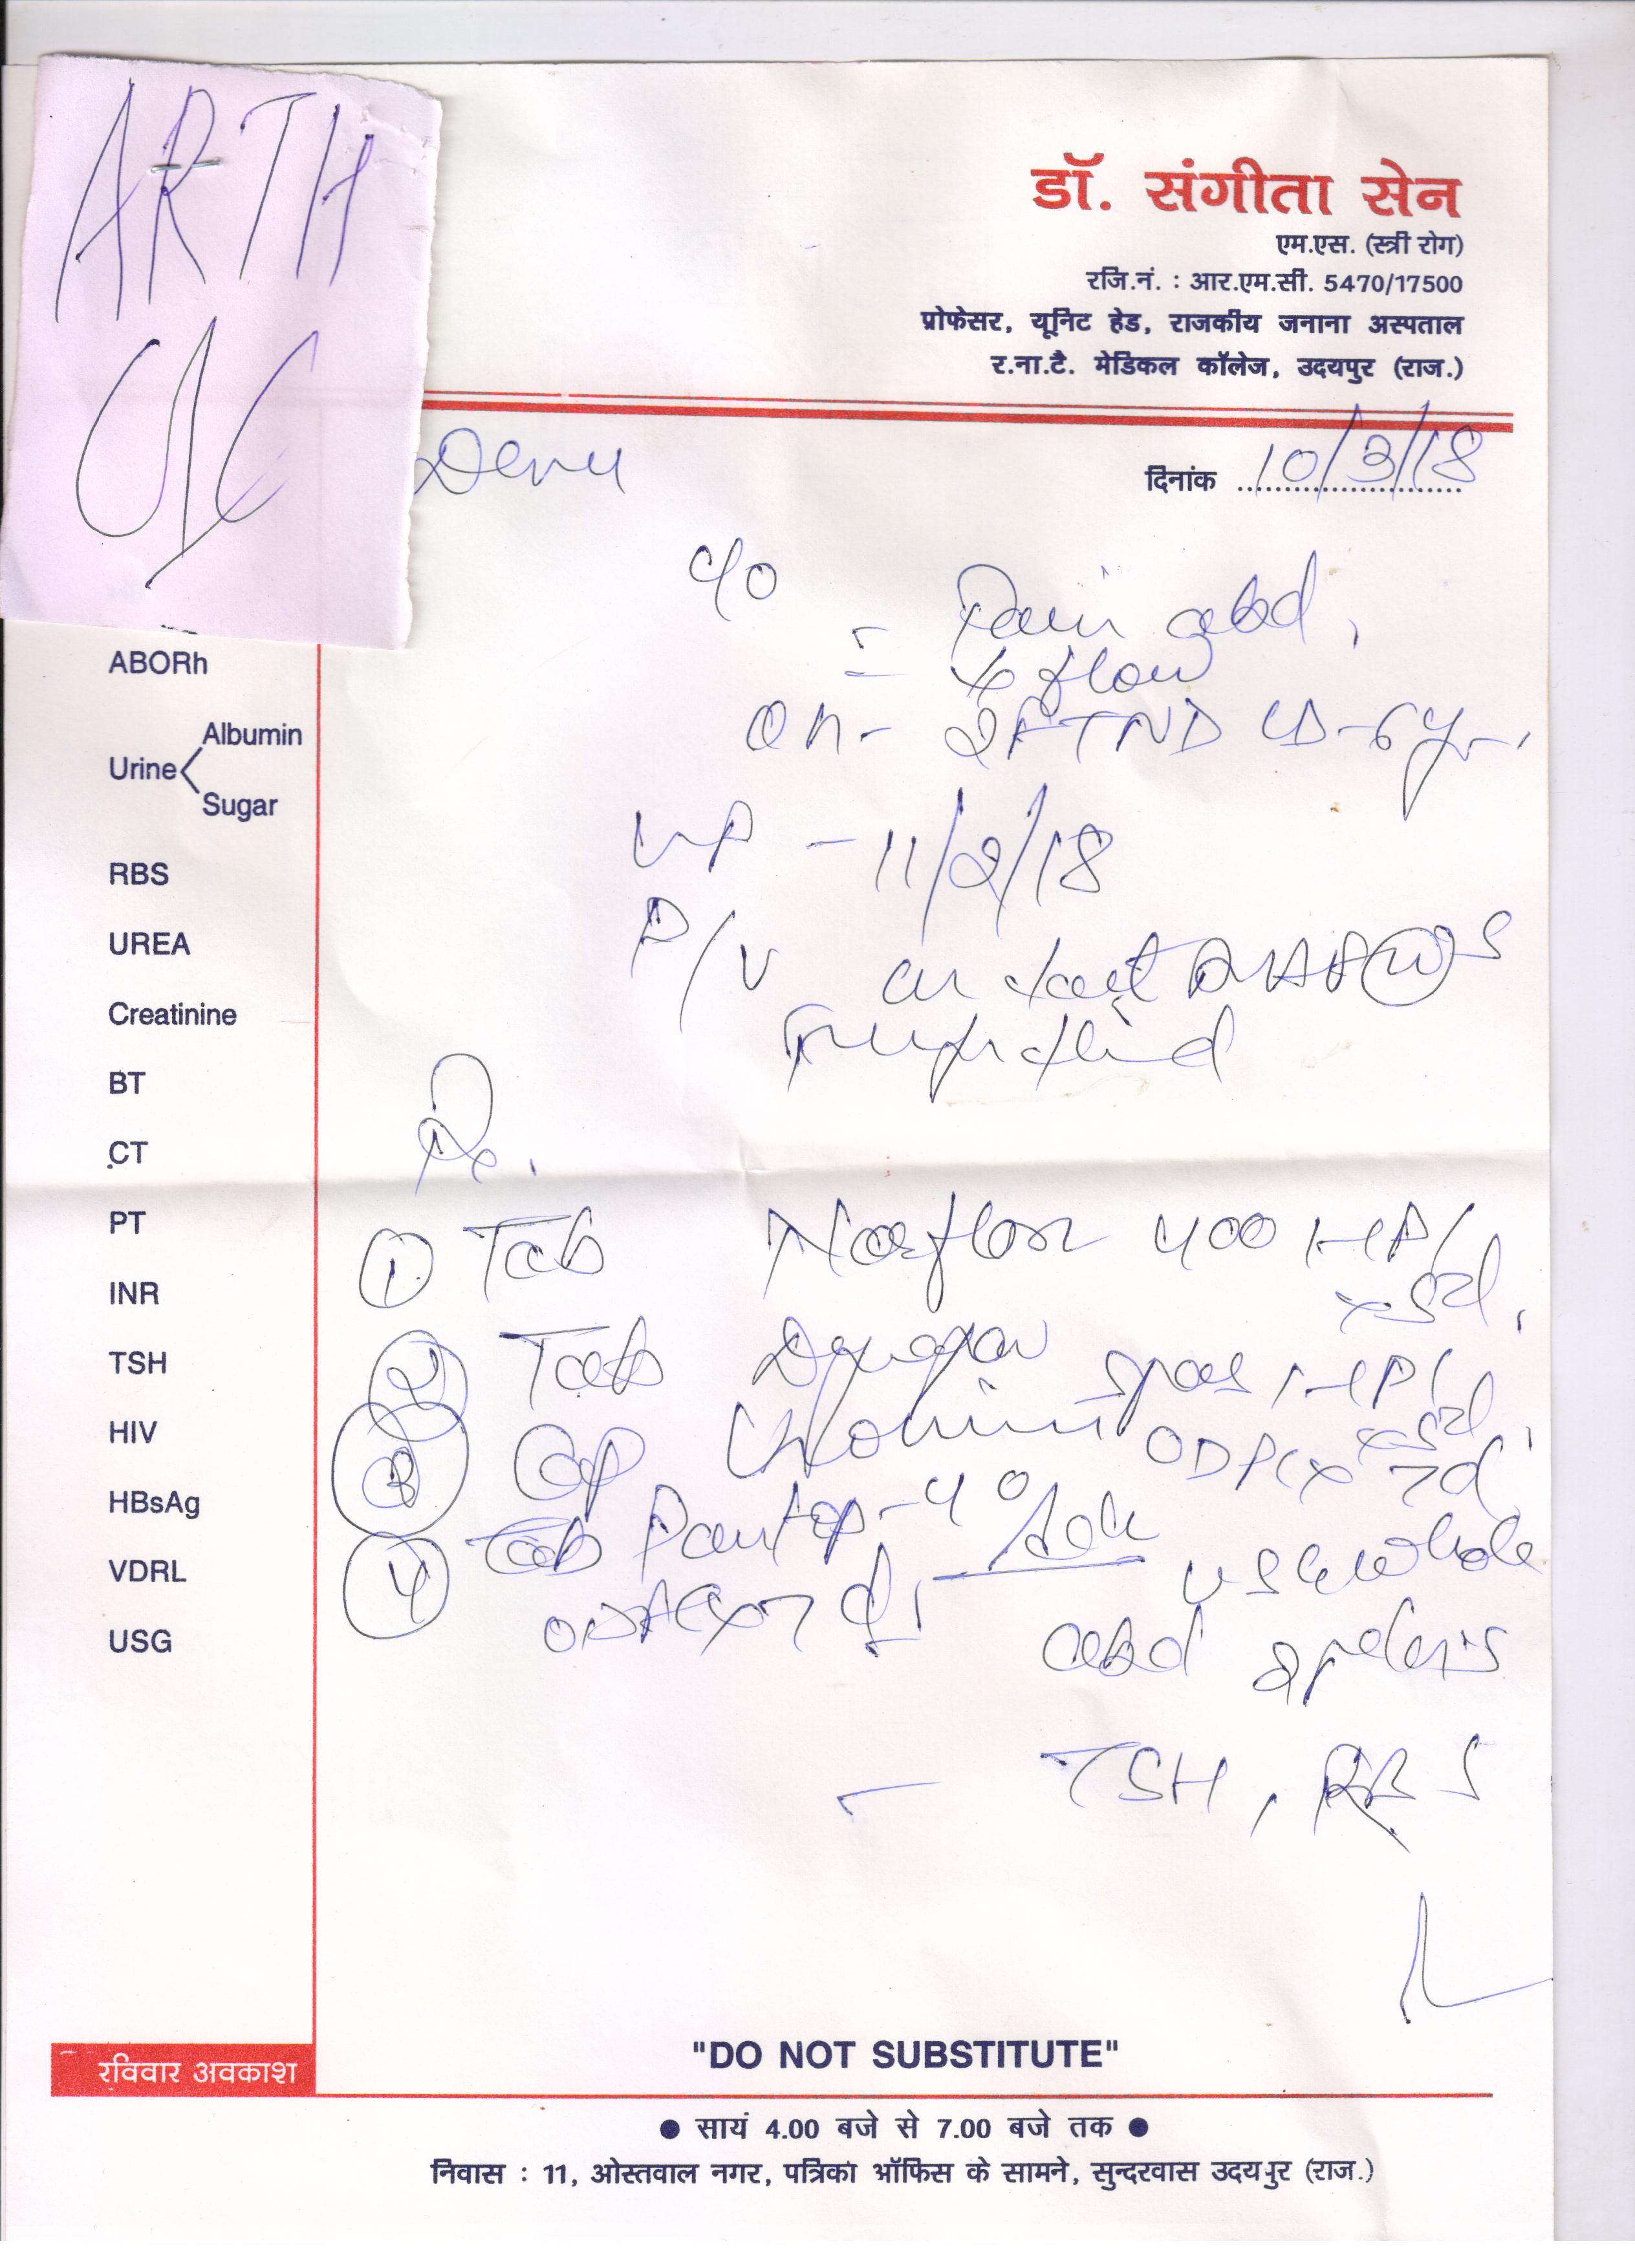 ARTH
डॉ. संगीता सेन
एम.एस. (स्त्री रोग)
रजि.नं. : आर.एम.सी. 5470/17500
प्रोफेसर, यूनिट हेड, राजकीय जनाना अस्पताल
र.ना.टै. मेडिकल कॉलेज, उदयपुर (राज.)
दिनांक 10/3/18
C/O
- Pain abd.
flow
OH - 2FTND LD-6yr.
LMP - 11/2/18
P/V
ABORh
Urine Albumin
Sugar
RBS
UREA
Creatinine
BT
CT
PT
INR
TSH
HIV
HBsAg
VDRL
USG
Rx.
1 Tab Norflox 400 x 5d.
2 Tab spas x 5d
3 Cap OD x 7d
4 Tab Pantop-40 OD x 7d
Adv USG whole
abd & pelvis
- TSH, RBS
"DO NOT SUBSTITUTE"
रविवार अवकाश
● सायं 4.00 बजे से 7.00 बजे तक ●
निवास : 11, ओस्तवाल नगर, पत्रिका ऑफिस के सामने, सुन्दरवास उदयपुर (राज.)